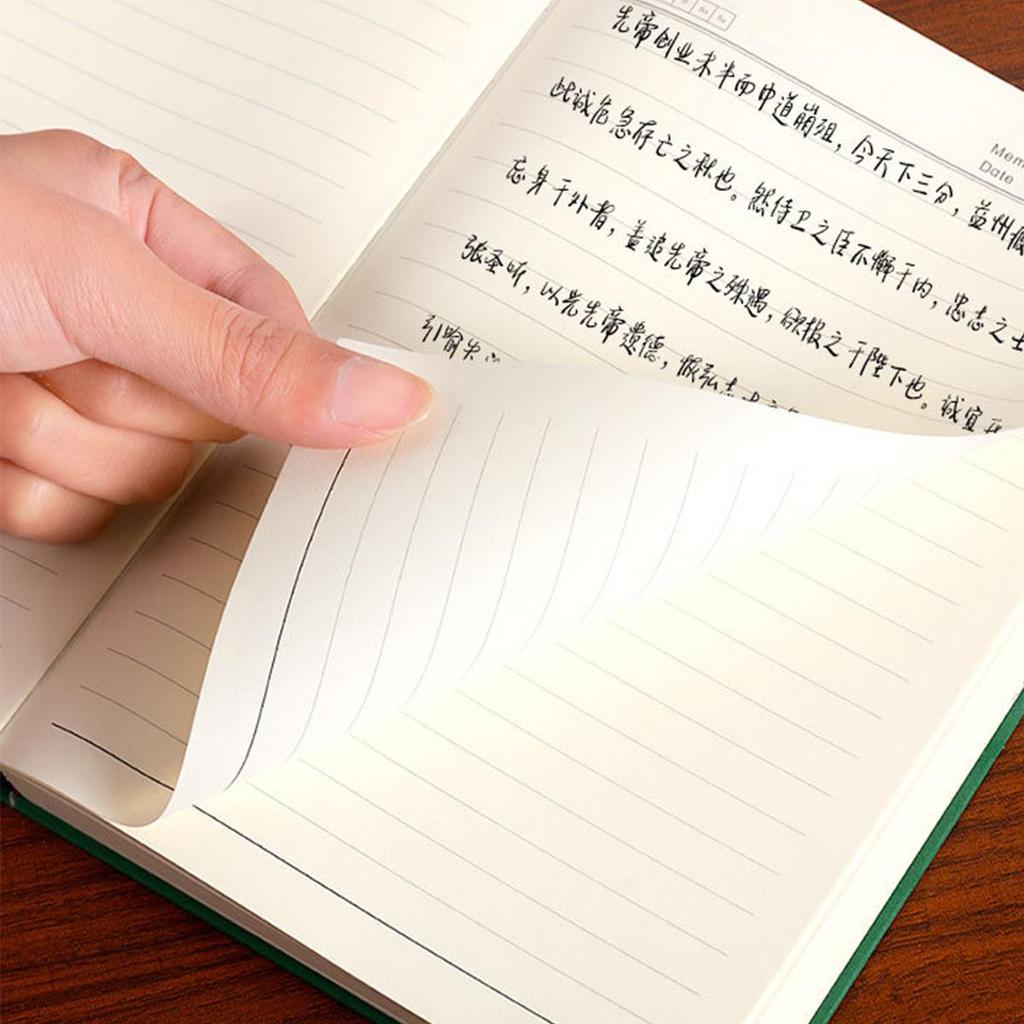 Date
先帝创业未半而中道崩殂，今天下三分，益州
此诚危急存亡之秋也。然侍卫之臣不懈于内，忠志之士
忘身于外者，盖追先帝之殊遇，欲报之于陛下也。诚宜开
张圣听，以光先帝遗德，恢弘志
引喻失